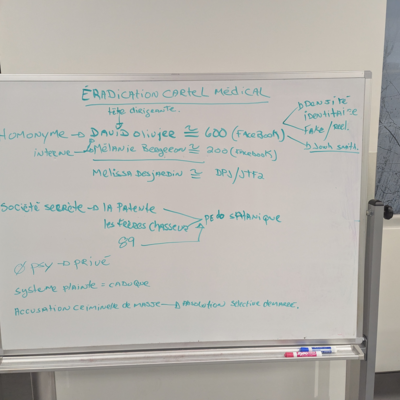 ÉRADICATION CARTEL MÉDICAL
tête dirigeante.
HOMONYME → DAVID Olivier ≅ 600 (FACEBOOK)
DENSITÉ
identitaire
FAKE / réel.
interne → Mélanie Bergeron ≅ 200 (Facebook)
Josh Smith
Melissa Desjardin ≅ DPJ/JTF2
Société secrète → LA PATENTE
les frères chasseurs
89
PEdo SATANIQUE
Ø psy → privé
système plainte =
ACCUSATION CRIMINELLE DE MASSE → ABSOLUTION SÉLECTIVE DE MASSE.